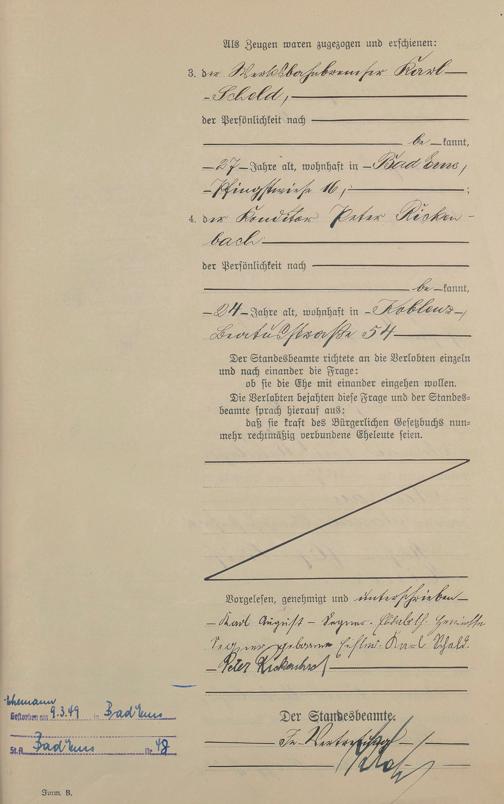 Als Zeugen waren zugezogen und erschienen:
3. der Werksbahnbremser Karl
Scheld,
der Persönlichkeit nach
be kannt,
27 Jahre alt, wohnhaft in Bad Ems,
Pfingstwiese 16, ;
4. der Konditor Peter Ricken-
bach
der Persönlichkeit nach
be kannt,
24 Jahre alt, wohnhaft in Koblenz,
Beatusstraße 54
Der Standesbeamte richtete an die Verlobten einzeln
und nach einander die Frage:
ob sie die Ehe mit einander eingehen wollen.
Die Verlobten bejahten diese Frage und der Standes-
beamte sprach hierauf aus:
daß sie kraft des Bürgerlichen Gesetzbuchs nun-
mehr rechtmäßig verbundene Eheleute seien.
Vorgelesen, genehmigt und unterschrieben
Karl August
geborene Karl Scheld.
Peter Rickenbach
Ehemann
Gestorben am 9.3.49 in Bad Ems
St.A. Bad Ems Nr. 48
Der Standesbeamte.
In Vertretung
Form. B.